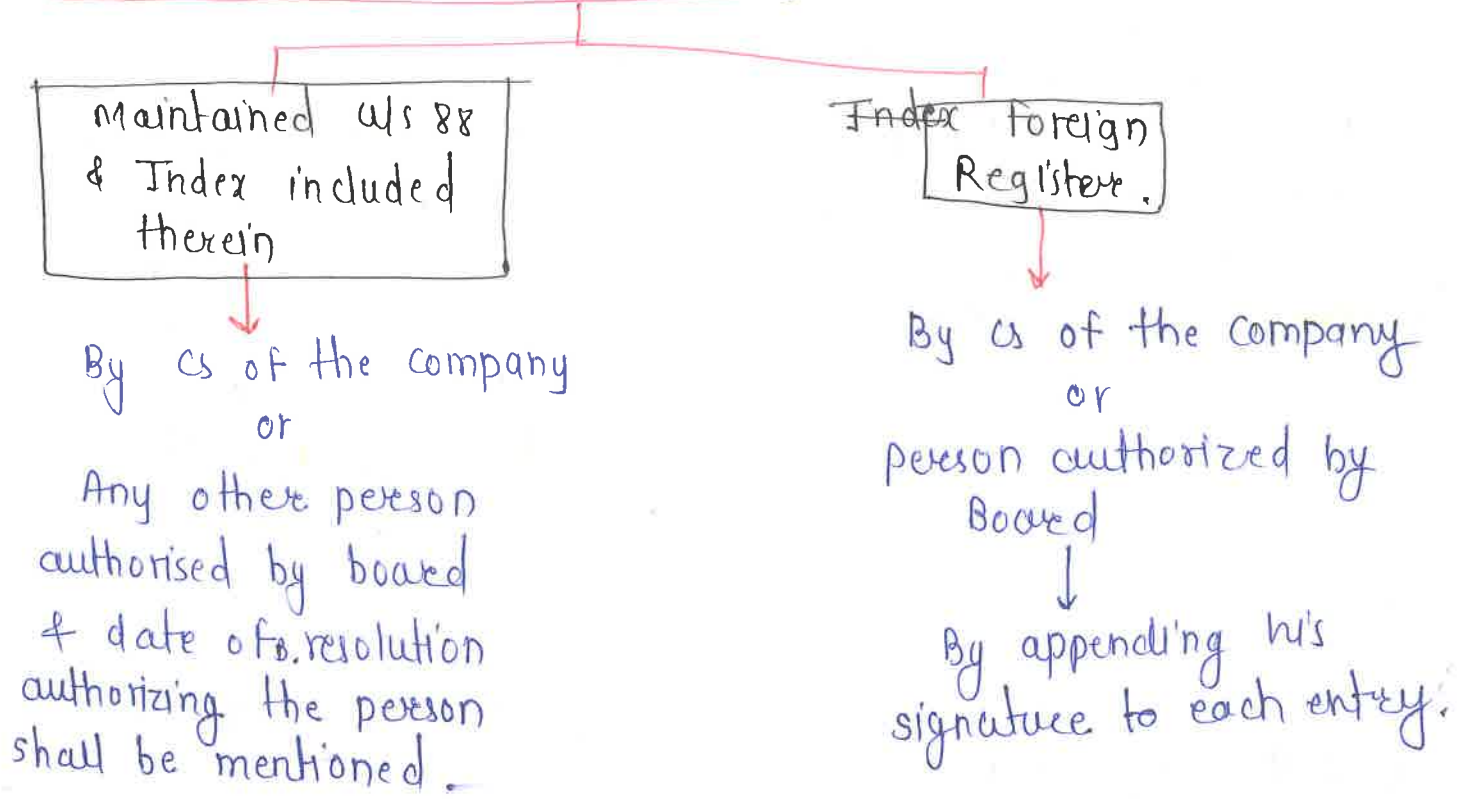 Maintained u/s 88
& Index included
therein
By CS of the company
or
Any other person
authorised by board
& date of B. resolution
authorizing the person
shall be mentioned.
Index Foreign
Register.
By CS of the company
or
person authorized by
Board
By appending his
signature to each entry.